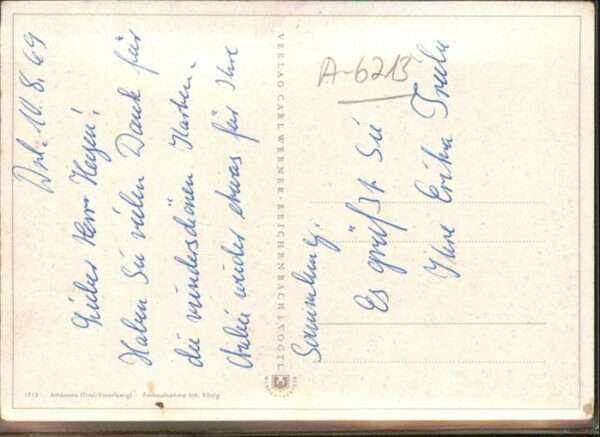 Drl. 10.8.69
Lieber Herr Heyen!
Haben Sie vielen Dank für
die wunderschönen Karten.
Anbei wieder etwas für Ihre
Sammlung.
Es grüßt Sie
Ihre Erika
A-6213
VERLAG CARL WERNER, REICHENBACH I. VOGTL.
1713 Achensee (Tirol/Vorarlberg) Farbaufnahme Joh. König